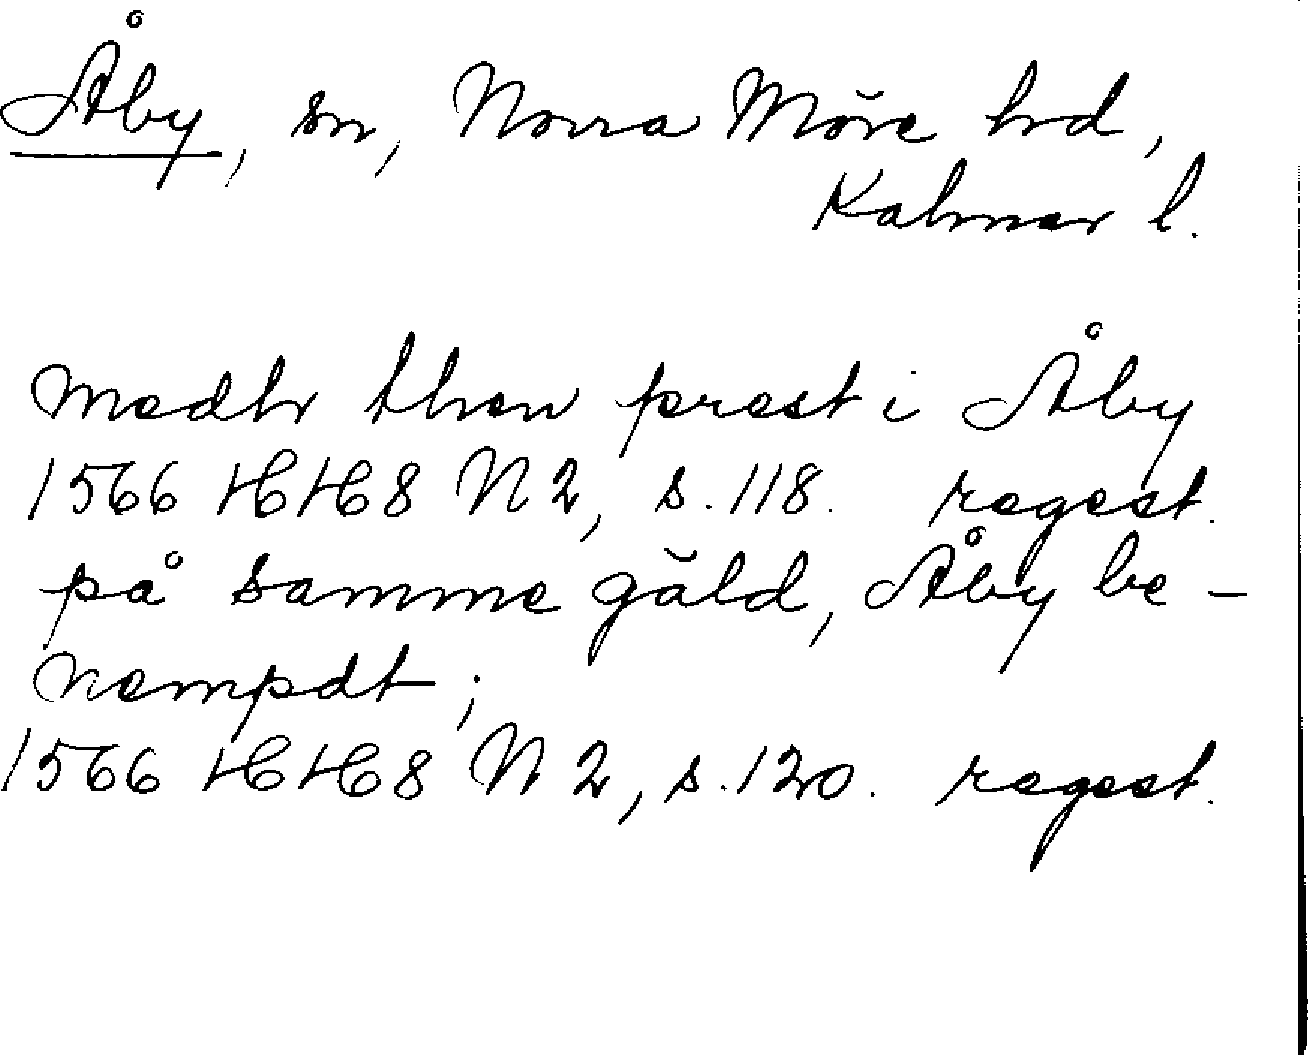 Åby, sn, Norra Möre hd,
Kalmar l.
medh then prest i Åby
1566 HH 8 N 2, s. 118. regest.
på samme gäld, Åby be-
nempdt;
1566 HH 8 N 2, s. 120. regest.